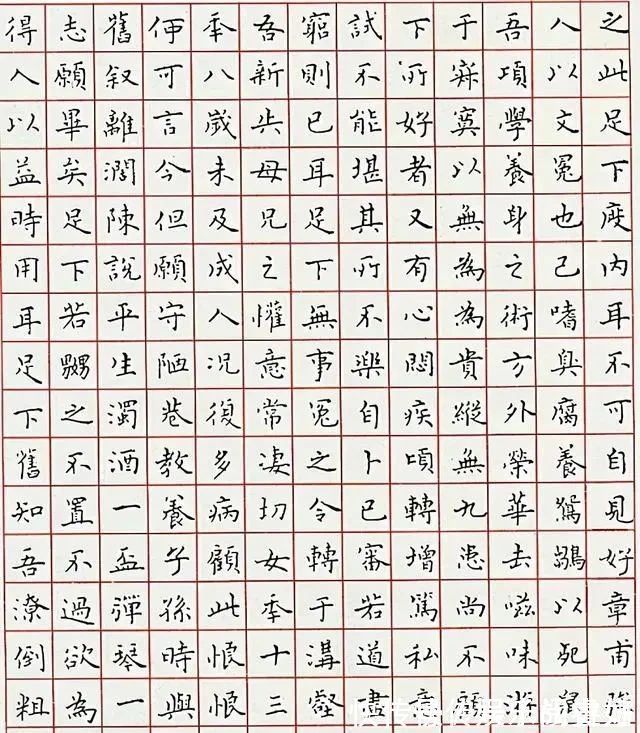 之此足下度内耳不可自見好章甫
人以文冕也己嗜臭腐養鴛鶵以死鼠
吾項學養身之術方外榮華去嗞味
于寂寞以無為為貴縱無九患尚不顧
下所好者又有心悶疾頃轉增篤私意
試不能堪其所不樂自卜已審若道盡
窮則已耳足下無事冤之令轉于溝壑
吾新失母兄之懽意常凄切女年十三
年八歲未及成人況復多病顧此恨恨
何可言今但願守陋巷教養子孫時與
舊叙離闊陳說平生濁酒一盃彈琴一
志願畢矣足下若嬲之不置不過欲為
得人以益時用耳足下舊知吾潦倒粗